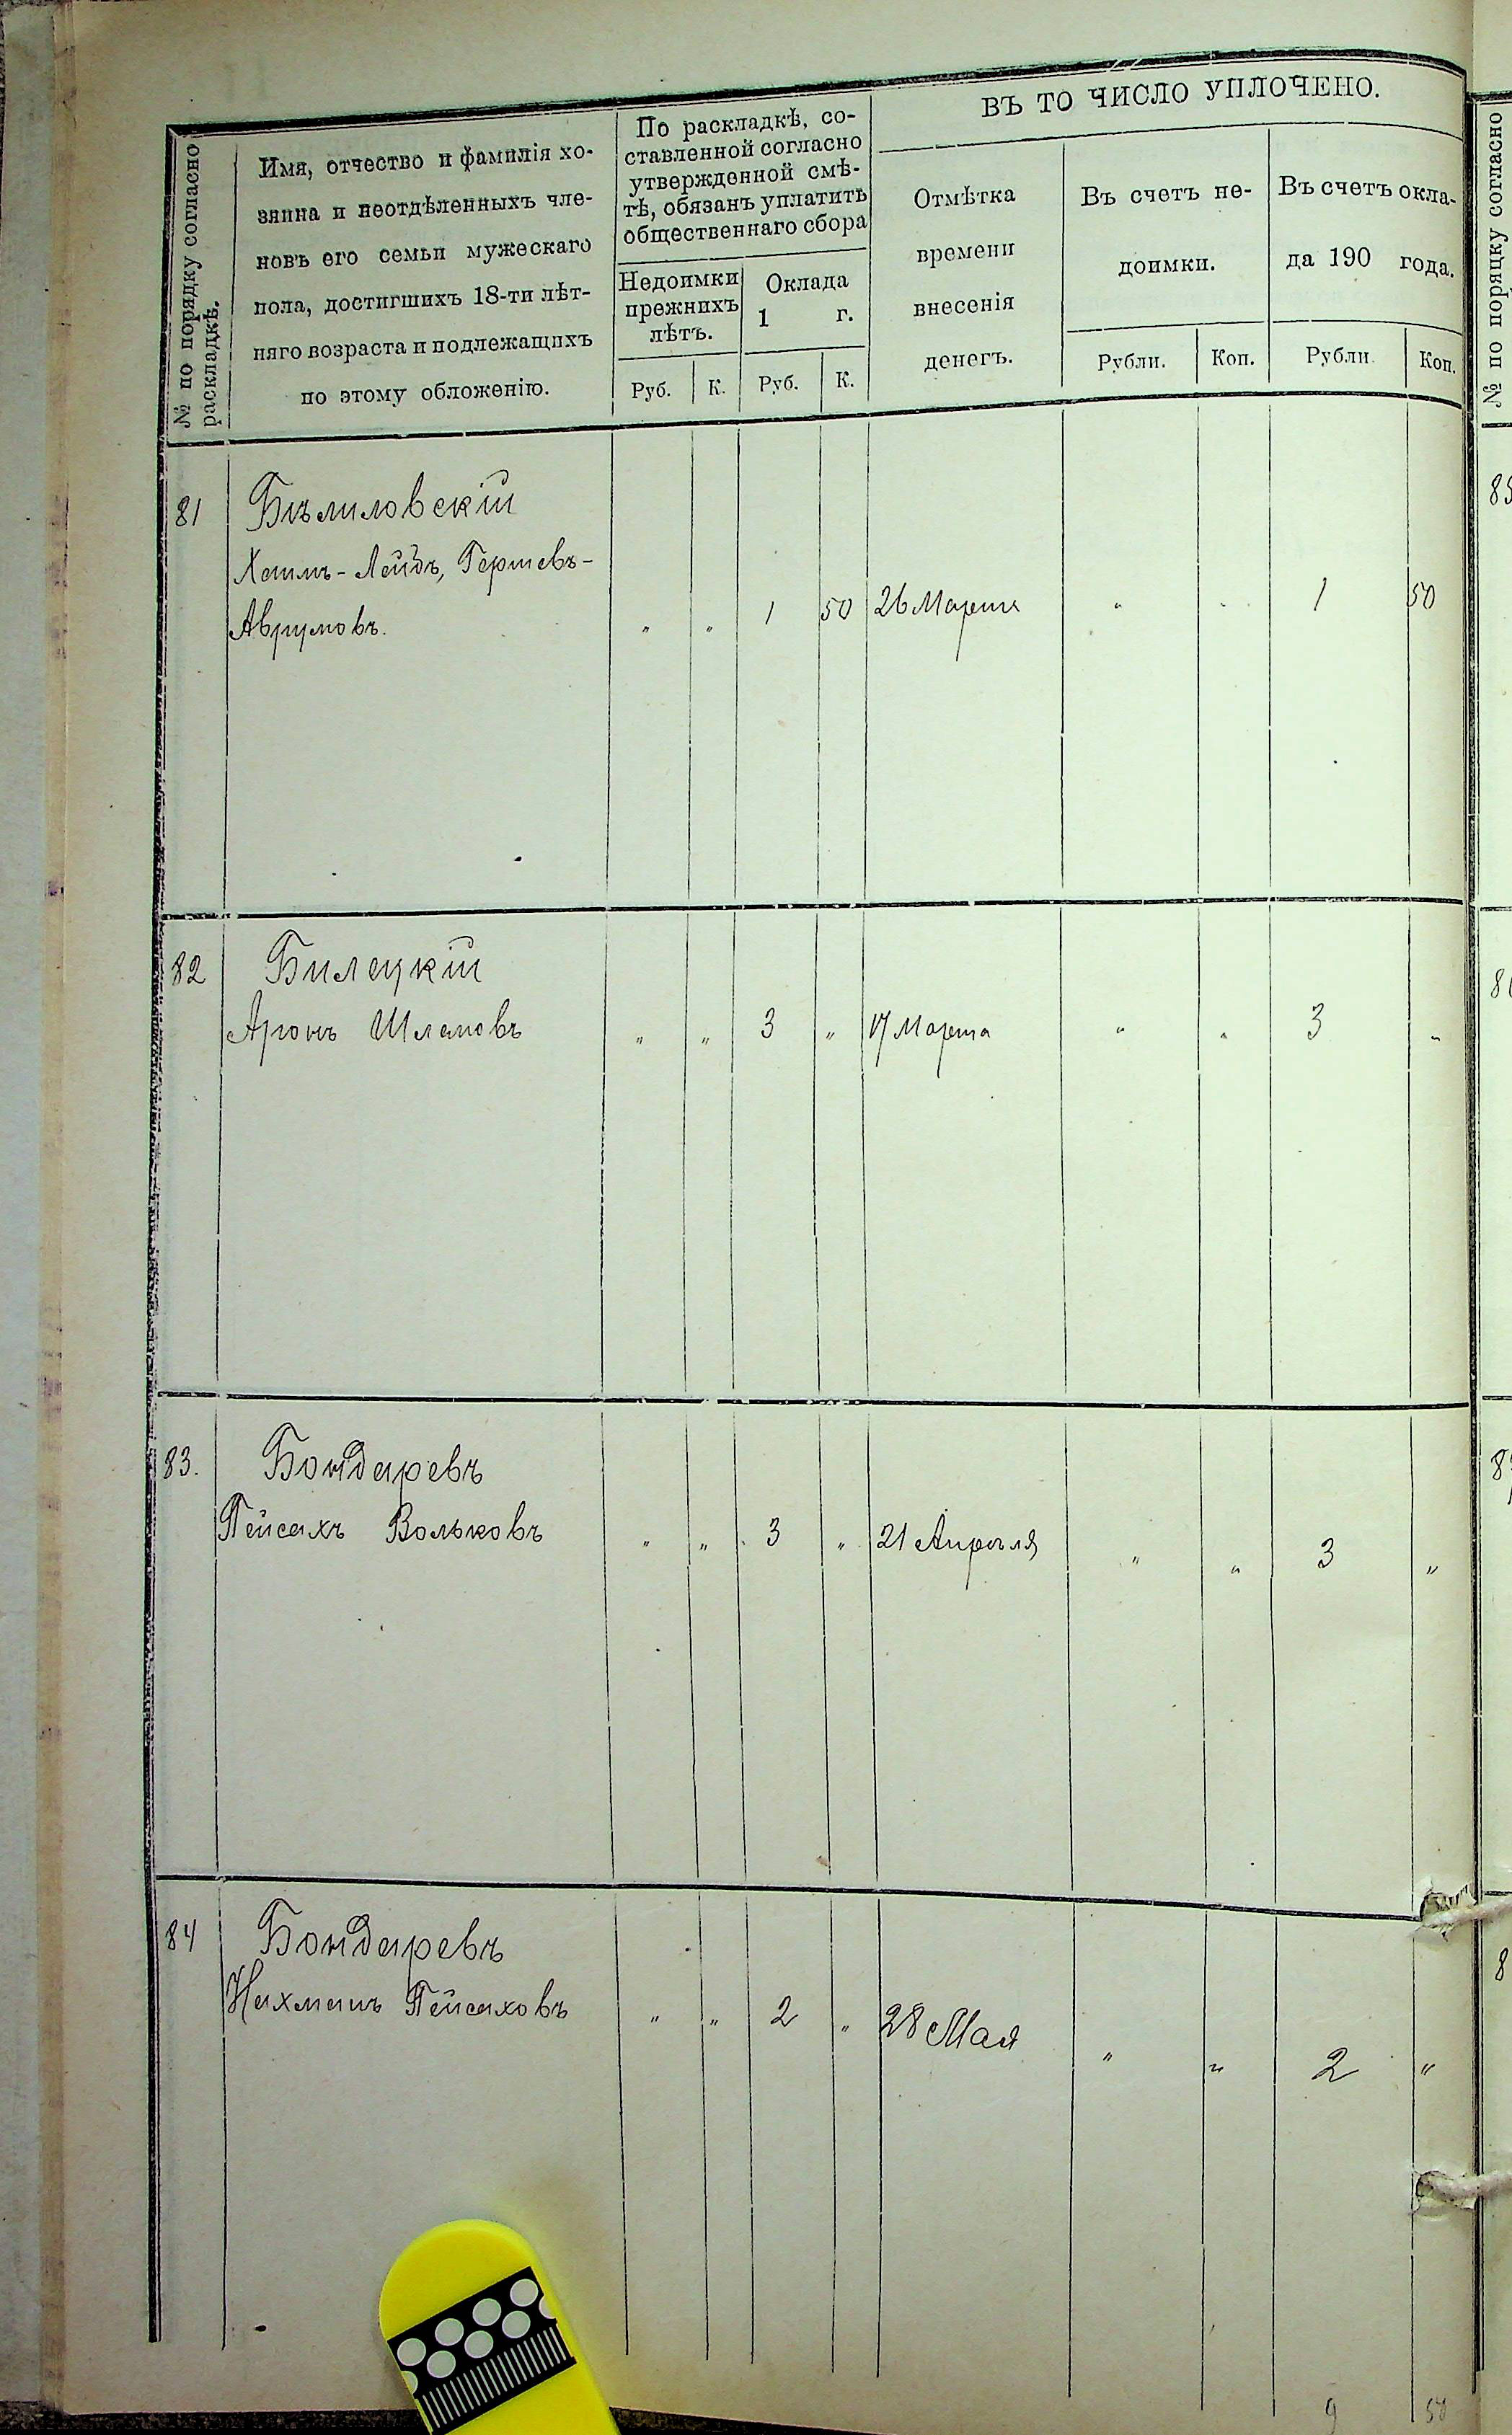 № по порядку согласно
раскладкѣ.
Имя, отчество и фамилія хо-
зяина и неотдѣленныхъ чле-
новъ его семьи мужескаго
пола, достигшихъ 18-ти лѣт-
няго возраста и подлежащихъ
по этому обложенію.
По раскладкѣ, со-
ставленной согласно
утвержденной смѣ-
тѣ, обязанъ уплатить
общественнаго сбора
Недоимки
прежнихъ
лѣтъ.
Оклада
1 г.
Руб. К. Руб. К.
ВЪ ТО ЧИСЛО УПЛОЧЕНО.
Отмѣтка
времени
внесенія
денегъ.
Въ счетъ не-
доимки.
Въ счетъ окла-
да 190 года.
Рубли. Коп. Рубли. Коп.
81 Бѣлиловскій
Хаимъ-Лейбъ, Гершевъ-
Аврумовъ. " " 1 50 26 Марта " " 1 50
82 Билецкій
Аронъ Шлемовъ " " 3 " 17 Марта " " 3 "
83. Бондаревъ
Пейсахъ Вольковъ " " 3 " 21 Апрѣля " " 3 "
84 Бондаревъ
Нахманъ Пейсаховъ " " 2 " 28 Мая " " 2 "
9 50
№ по порядку согласно